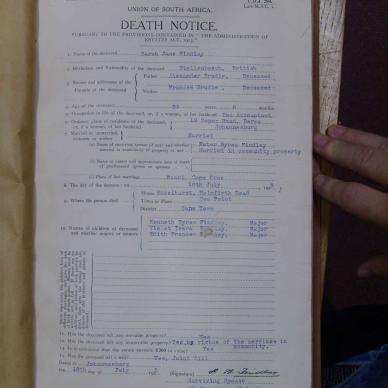 UNION OF SOUTH AFRICA.
DEATH NOTICE.
PURSUANT TO THE PROVISIONS CONTAINED IN "THE ADMINISTRATION OF ESTATES ACT, 1913."
1. Name of the deceased Sarah Jane Findlay
2. Birthplace and Nationality of the deceased Stellenbosch, British
3. Names and addresses of the Parents of the deceased
Father Alexander Brodie, Deceased
Mother Frances Brodie, Deceased
4. Age of the deceased years months
5. Occupation in life of the deceased, or, if a woman, of her husband Tax Accountant
6. Ordinary place of residence of the deceased, or, if a woman, of her husband
Johannesburg
7. Married or unmarried, widower or widow Married
(a) Name of surviving spouse (if any) and whether married in community of property or not Peter Byres Findlay
Married in community of property
(b) Name or names and approximate date of death of predeceased spouse or spouses
(c) Place of last marriage Paarl, Cape Prov
8. The day of the decease: on 18th July 193
9. Where the person died
House Hazelhurst, Holmfirth Road
Town or Place Sea Point
District Cape Town
10. Names of children of deceased and whether majors or minors
Kenneth Byres Findlay, Major
Violet Major
Edith Frances Major
11. Has the deceased left any movable property? Yes
12. Has the deceased left any immovable property? Yes, by virtue of the marriage in community.
13. Is it estimated that the estate exceeds £300 in value? Yes
14. Has the deceased left a will? Yes, Joint Will
Dated at Johannesburg
the 18th day of July 193
(Signature)
Surviving Spouse